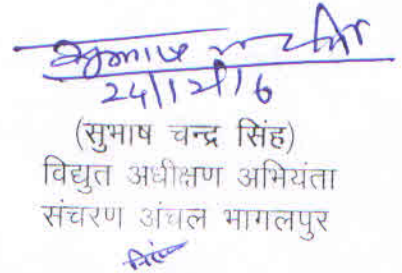 सुभाष चन्द्र सिंह
24/12/16
(सुभाष चन्द्र सिंह)
विद्युत अधीक्षण अभियंता
संचरण अंचल भागलपुर